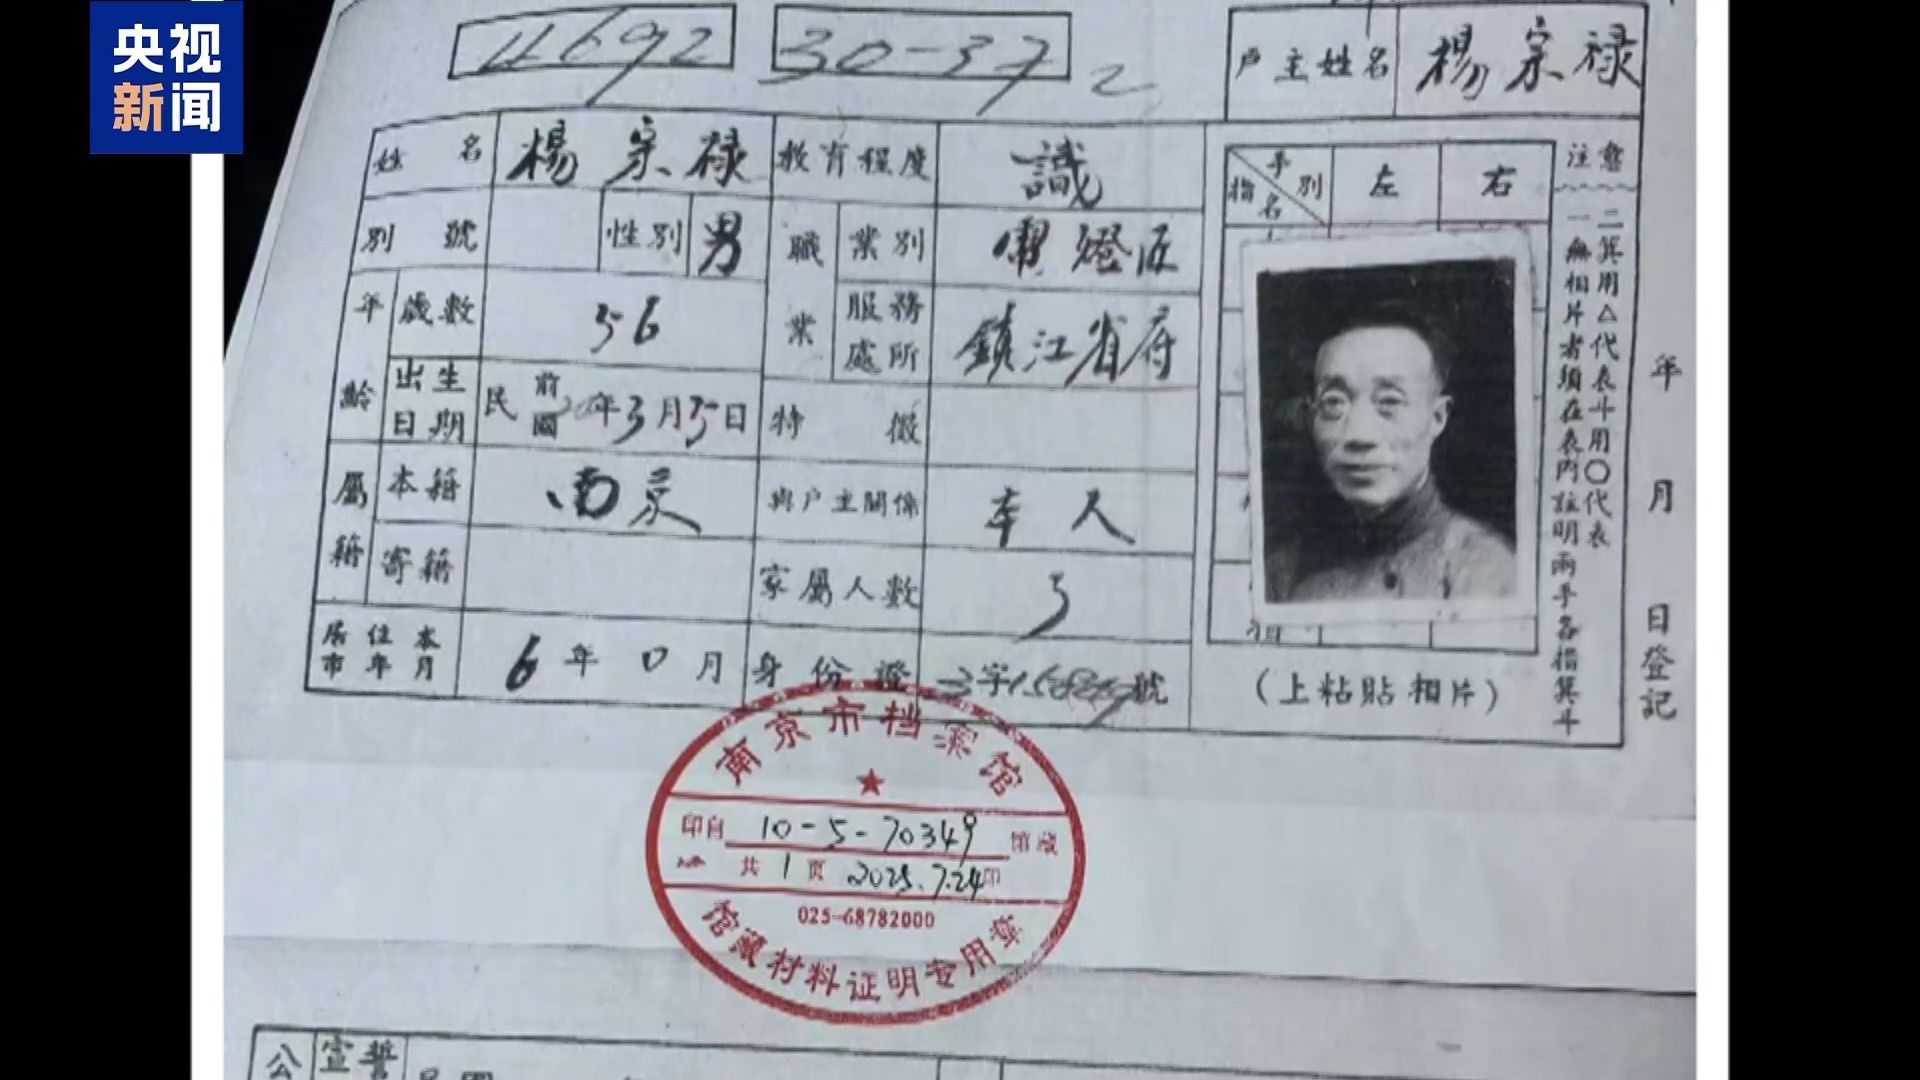 央视
新闻
4692
30-37
2
户主姓名 楊宗禄
姓名 楊宗禄 教育程度 識
別號 性别 男 職業 業別 燈匠
年齡 歲數 56 服務處所 鎮江省府
出生日期 民前國 年3月 日 特徵
屬籍 本籍 南京 與户主關係 本人
寄籍 家屬人數 5
居住本市年月 6年0月 身份證 字 號
手別 指名 左 右
(上粘貼相片)
注意
一 無相片者須在表内註明兩手各指箕斗
二 箕用△代表斗用〇代表
年 月 日登記
南京市档案馆
印自 10-5-70349 馆藏
共1页 2025.7.24印
025-68782000
馆藏材料证明专用章
公 宣誓